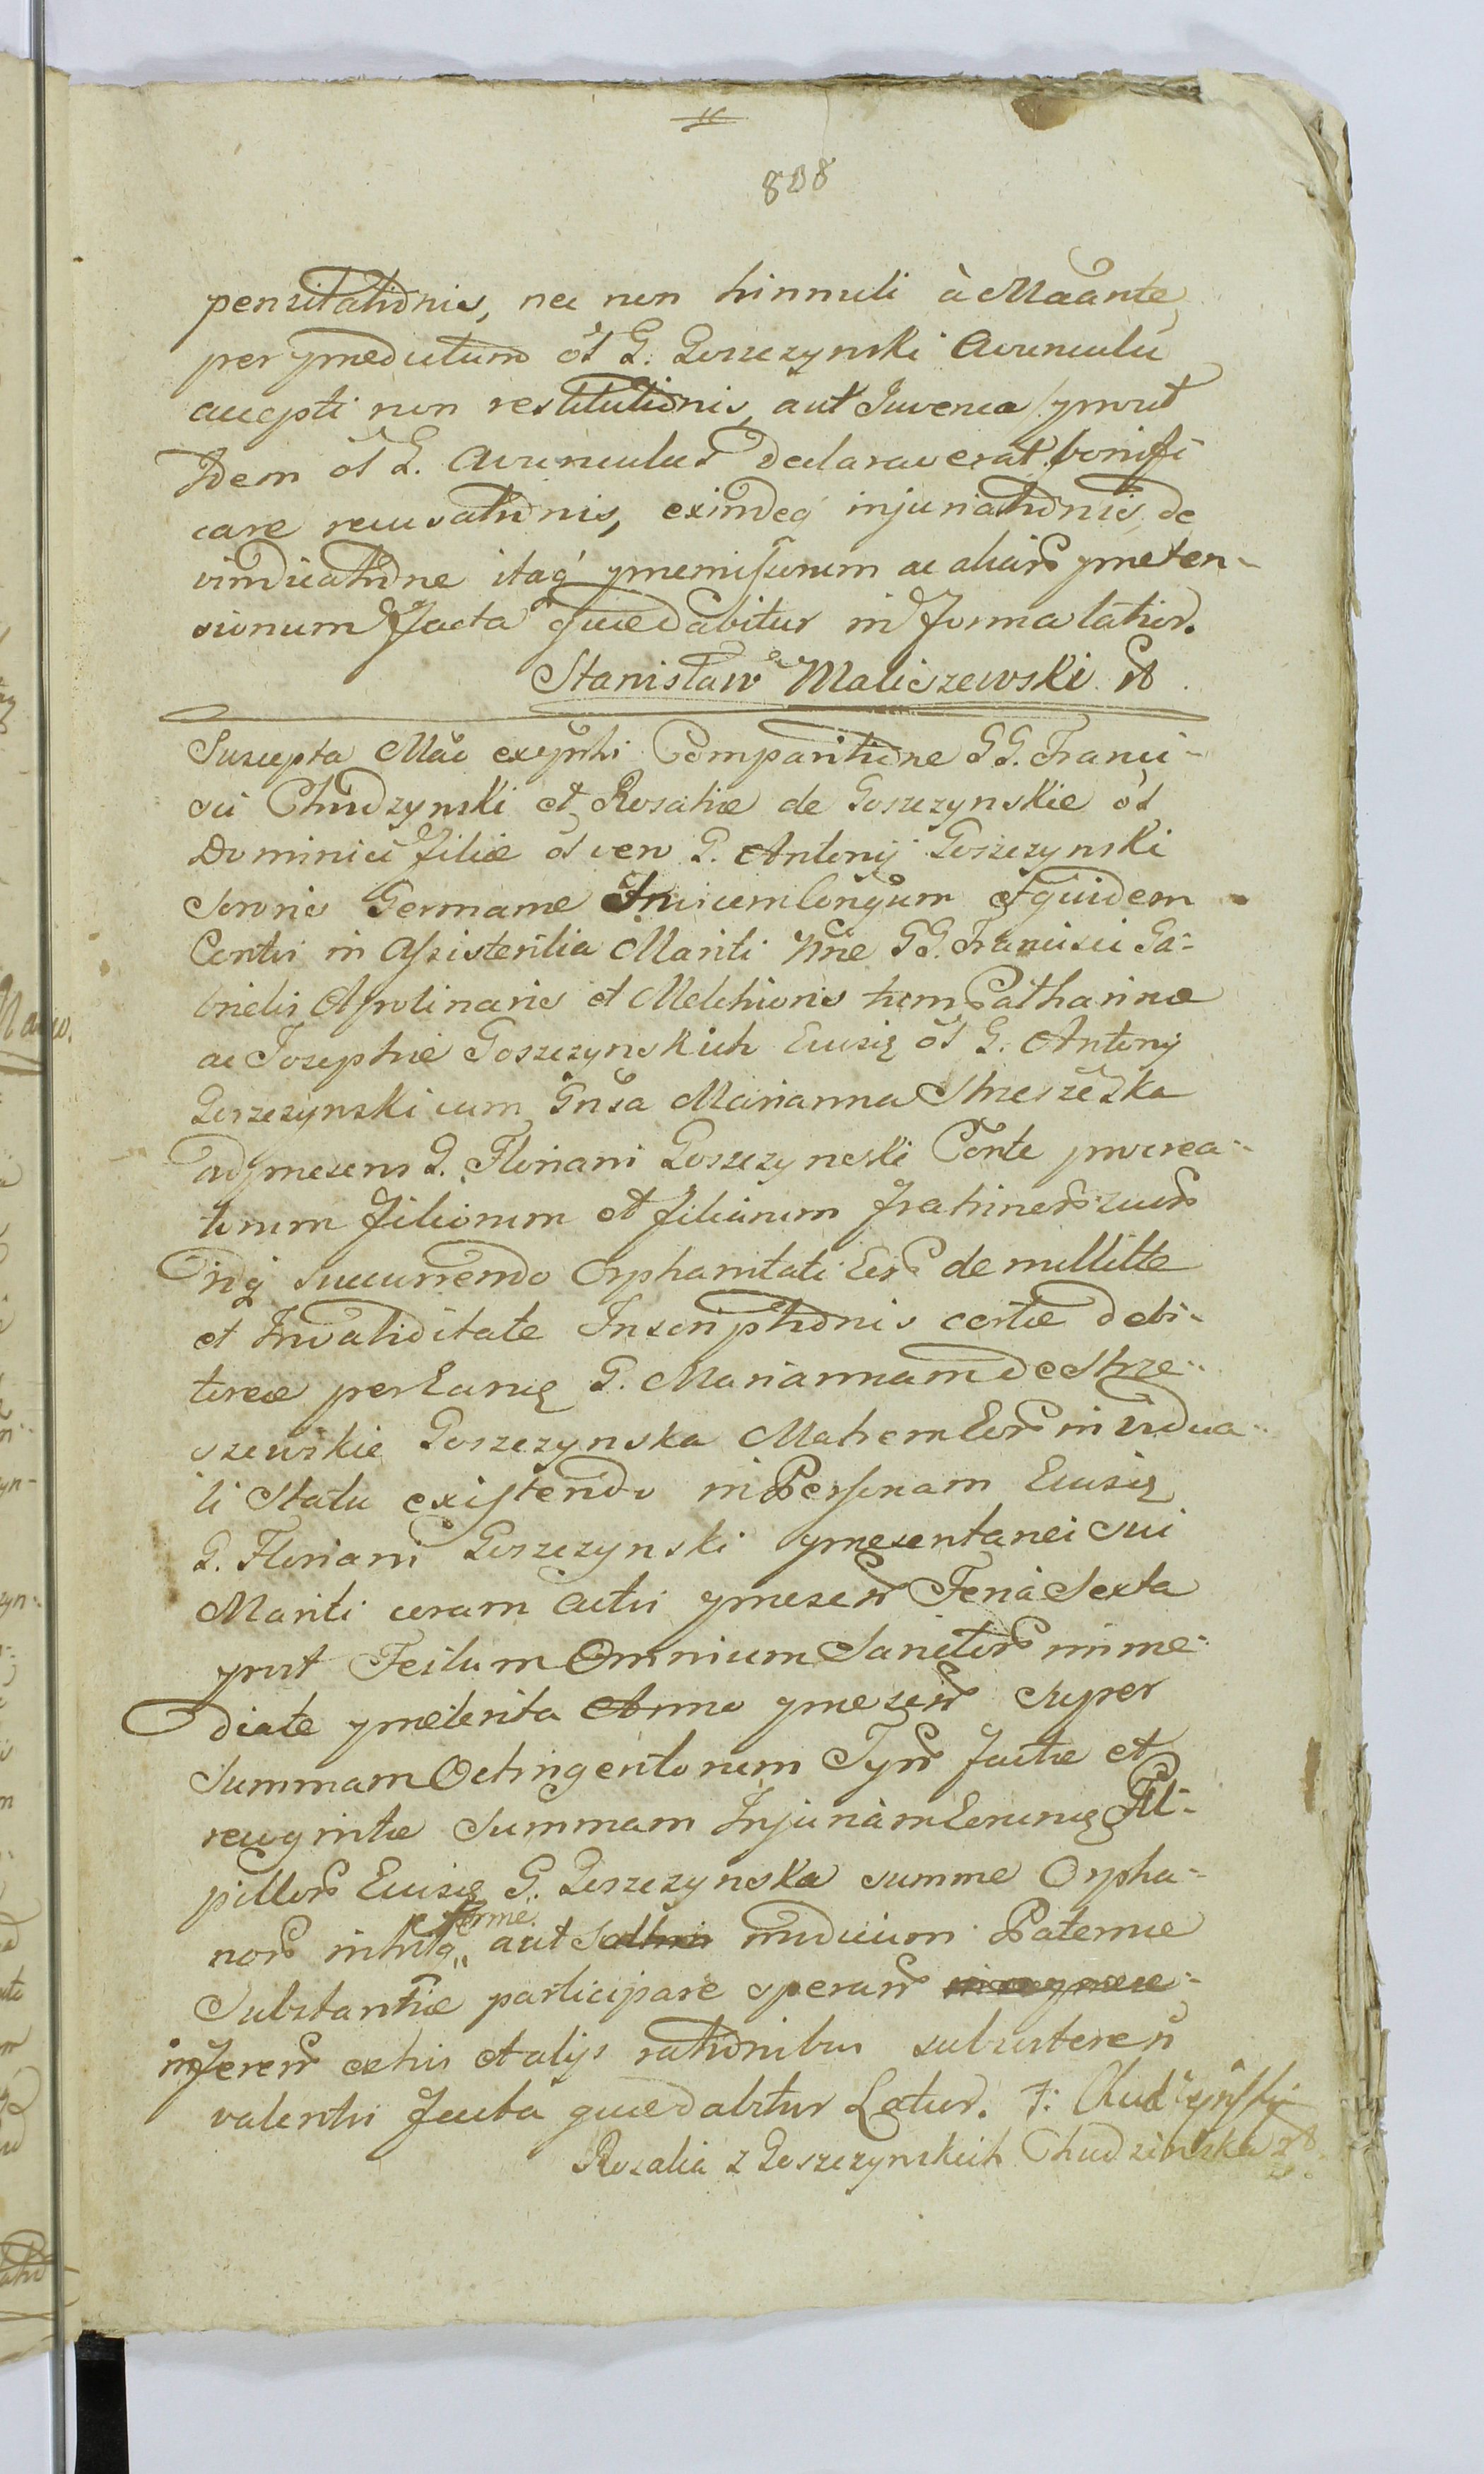 808
pensitationis, nec non hinnuli à Maante
per praedictum ol G. Goszczynski Avunculu
accepti non restitutionis, aut Juvenca prout
Idem ol G. Avunculus declaraverat bonifi
care recusationis, exindeq injuriationis, de
vindicatione itaq praemissorum ac aliar praeten-
sionum Facta quae dabitur in Forma latior.
Stanisław Maliszewski
Suscepta Mao expnti Comparitione GG. Franci-
sci Chudzynski et Rosaliae de Goszczynskie ol
Dominici filiae ol vero G. Antonij Goszczynski
Sororis Germanae Invicem Congum et quidem
Contis in Assistentia Mariti Nne GG. Francisci Ga-
brielis Apolinaris et Melchioris tum Catharinae
ac Josephae Goszczynskich Eiusq ol G. Antonij
Goszczynski cum Gnsa Marianna Strzeszewska
ad praesens G. Floriani Goszczynski Conte procrea-
torum filiorum et filiarum fratriner suor
inq succurrendo Orphanitati Eor de nullitte
et Invaliditate Inscriptionis certae debi-
toreae per Eanq G. Mariannam de Strze-
szewskie Goszczynska Matrem Eor in vidua-
li Statu existendo in Personam Eiusq
G. Floriani Goszczynski praesentanei sui
Mariti coram Actis praesen Feria Sexta
post Festum Omnium Sanctor imme-
diate praeterita Anno praesen super
Summam Octingentorum Tyn factae et
recognitae Summam Injuriam Eorumq
pillor Eiusq G. Goszczynska summe Orpha-
nor aut modicum Paternae
ferme
Substantiae participare speran
inferen exhis et alijs rationibus subsisteren
valentis Facta quae dabitur Latior. F: Chudzynski
Rozalia z Goszczynskich Chudzinska